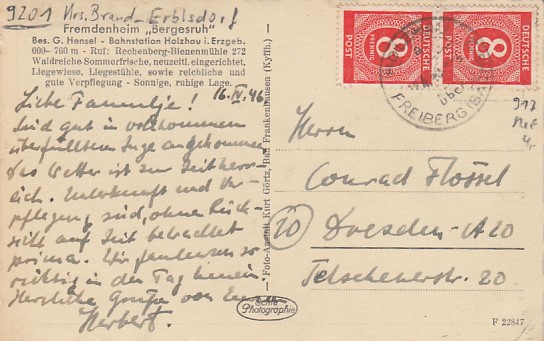 9201 Krs. Brand-Erbisdorf
Fremdenheim „Bergesruh"
Bes. G. Hensel - Bahnstation Holzhau i. Erzgeb.
600-760 m - Ruf: Rechenberg-Bienenmühle 272
Waldreiche Sommerfrische, neuzeitl. eingerichtet.
Liegewiese, Liegestühle, sowie reichliche und
gute Verpflegung - Sonnige, ruhige Lage.
16. IV. 46
Liebe Familie!
Sind gut in vollkommen
überfülltem Zuge angekommen
Das Wetter ist zur Zeit herr-
lich. Unterkunft und Ver-
pflegung sind, ohne Rück-
sicht auf Zeit betrachtet
prima. Wir faulenzen so
richtig in den Tag hinein.
Herzliche Grüße von
Herbert.
Foto-Anstalt Kurt Görtz, Bad Frankenhausen (Kyffh.)
Echte
Photographie
DEUTSCHE
POST
8
PFENNIG
DEUTSCHE
POST
8
PFENNIG
über
FREIBERG (SA
917
Herrn
Conrad Flössel
10 Dresden-A20
Teltschenerstr. 20.
F 22847